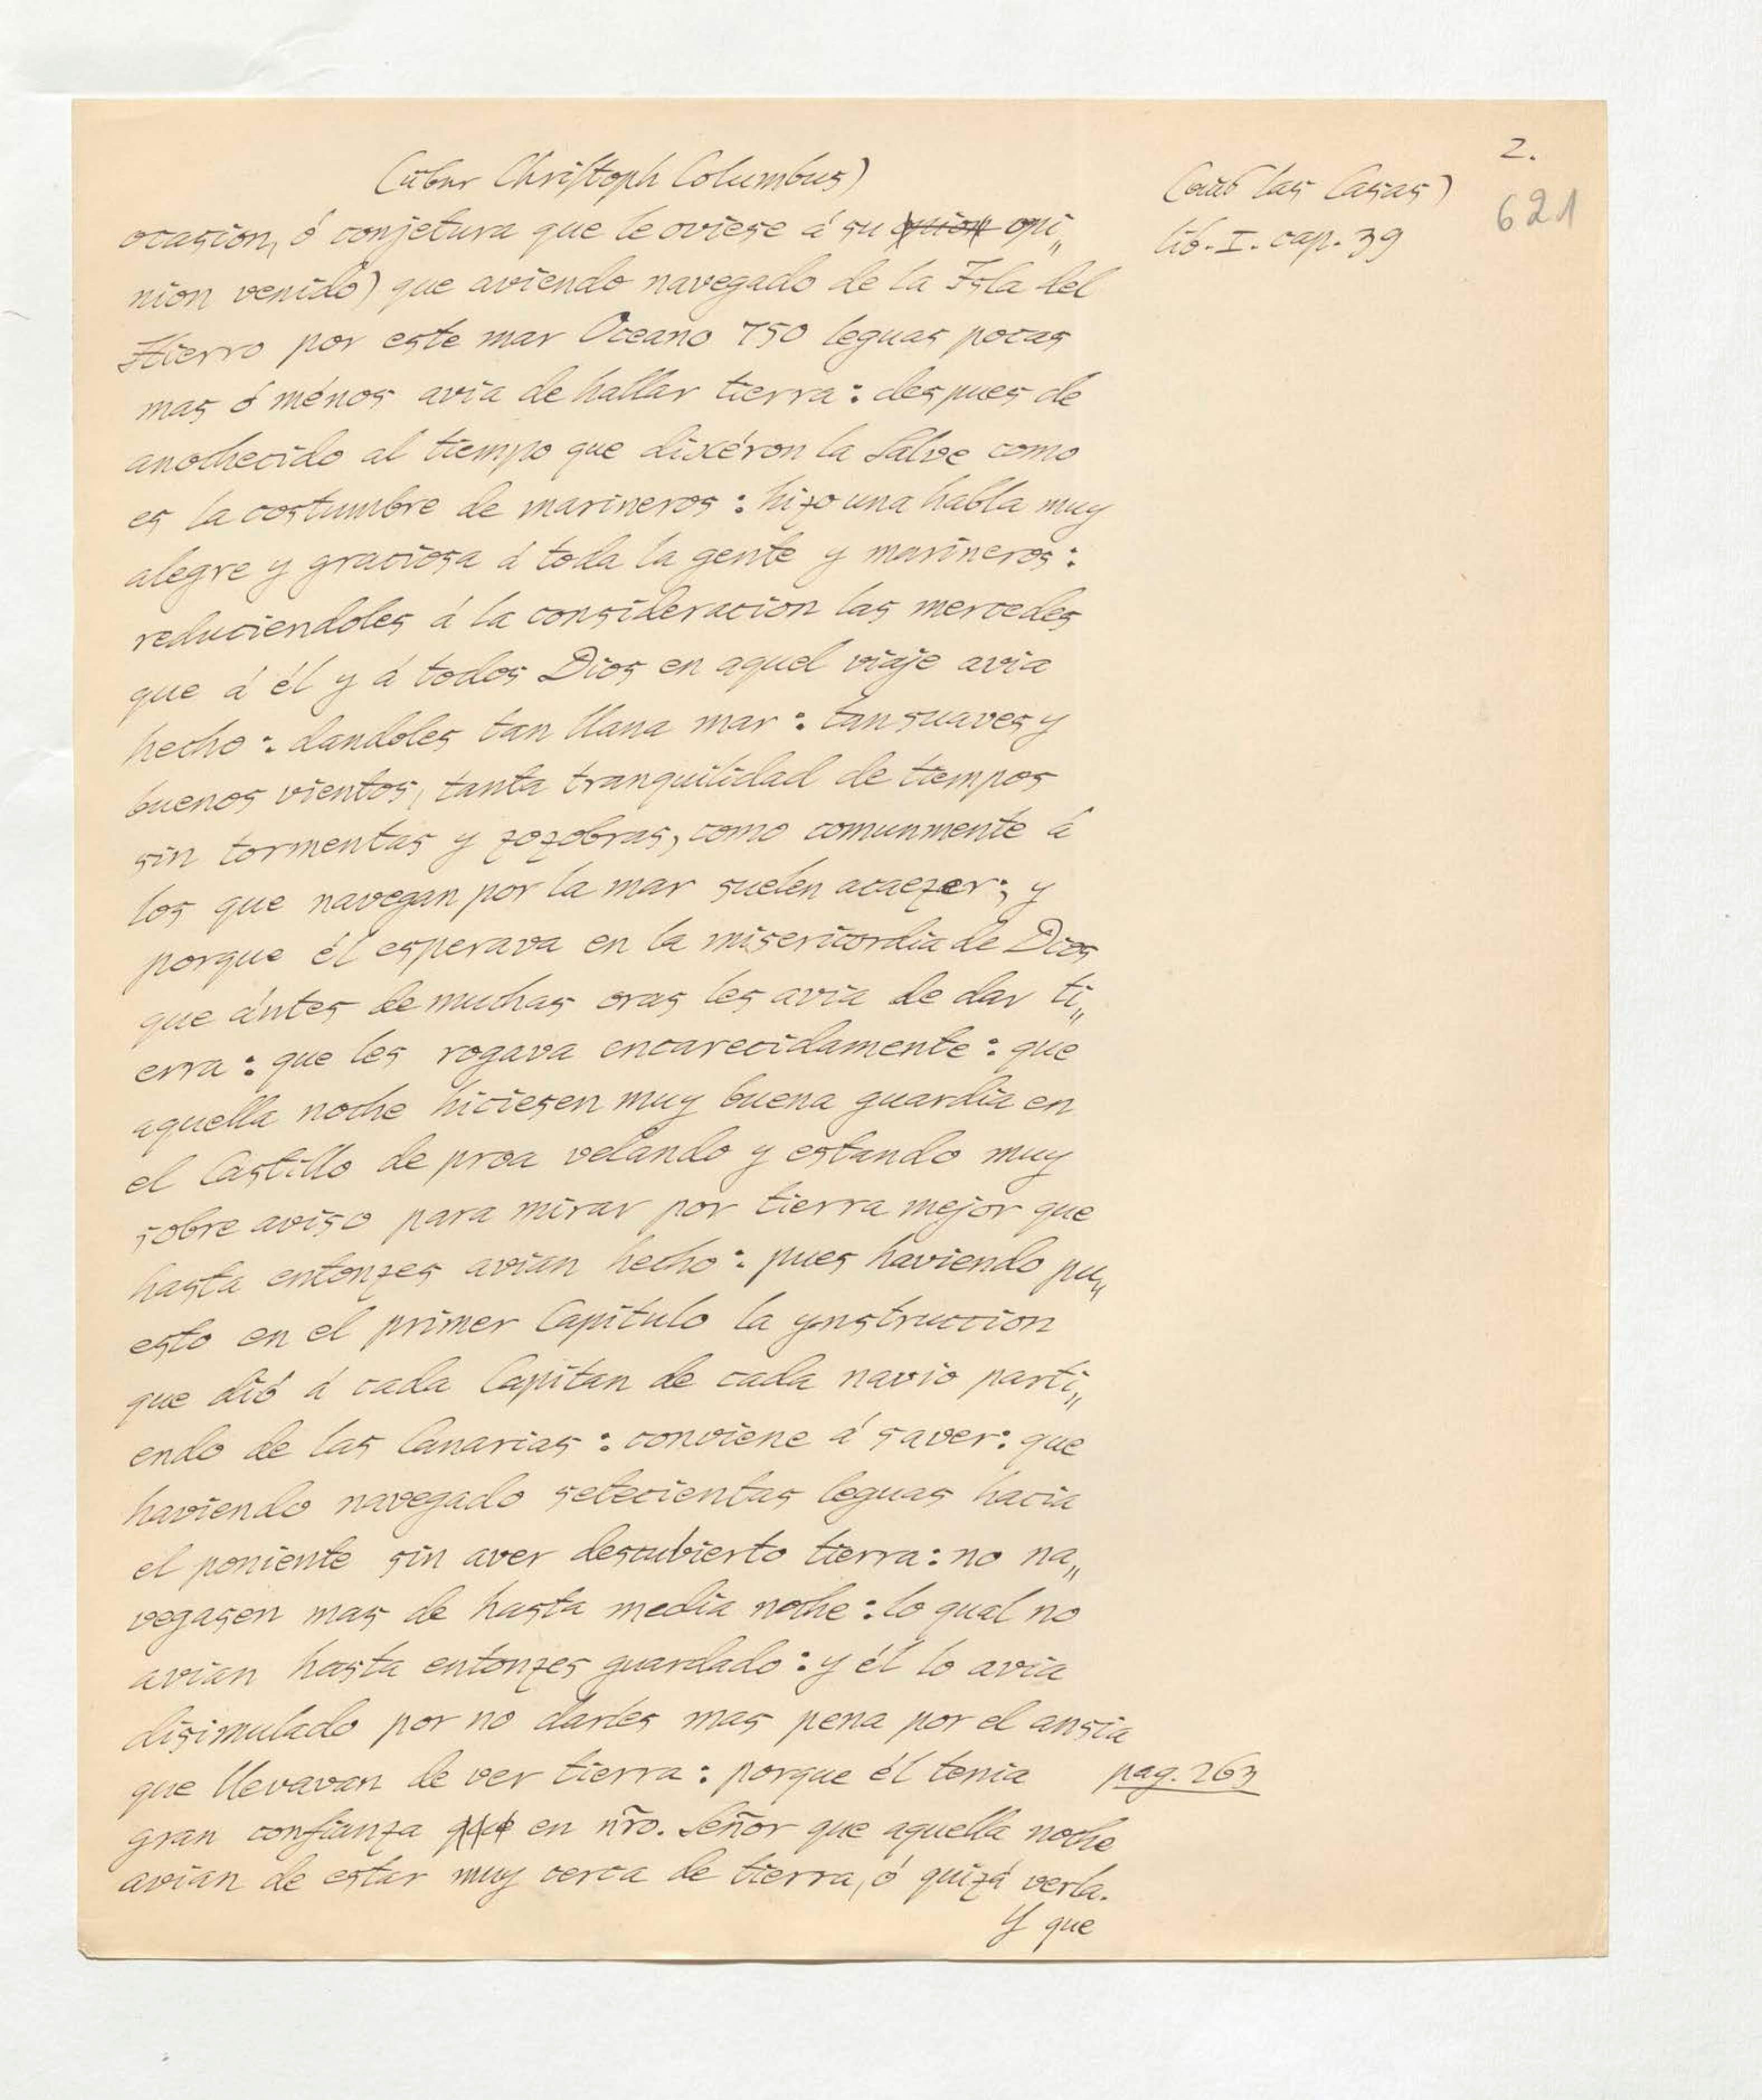 2.
(über Christoph Columbus)
(aus las Casas)
621
lib. I. cap. 39
ocasion, ó conjetura que le oviese á su opi„
nion venido) que aviendo navegado de la Isla del
Hierro por este mar Oceano 750 leguas pocas
mas ó ménos avia de hallar tierra: despues de
anochecido al tiempo que dixéron la Salve como
es la costumbre de marineros: hizo una habla muy
alegre y graciosa á toda la gente y marineros:
reduciendoles á la consideracion las mercedes
que á él y á todos Dios en aquel viaje avia
hecho: dandoles tan llana mar: tan suaves y
buenos vientos, tanta tranquilidad de tiempos
sin tormentas y zozobras, como comunmente á
los que navegan por la mar suelen acaezer; y
porque él esperava en la misericordia de Dios
que ántes de muchas oras les avia de dar ti„
erra: que les rogava encarecidamente: que
aquella noche hiciesen muy buena guardia en
el Castillo de proa velando y estando muy
sobre aviso para mirar por tierra mejor que
hasta entonzes avian hecho: pues haviendo pu„
esto en el primer Capitulo la ynstruccion
que dió á cada Capitan de cada navio parti„
endo de las Canarias: conviene á saver: que
haviendo navegado setecientas leguas hacia
el poniente sin aver descubierto tierra: no na„
vegasen mas de hasta media noche: lo qual no
avian hasta entonzes guardado: y él lo avia
disimulado por no darles mas pena por el ansia
que llevavan de ver tierra: porque él tenia
pag. 263
gran confianza que en nr̃o. Señor que aquella noche
avian de estar muy cerca de tierra, ó quizá verla.
Y que